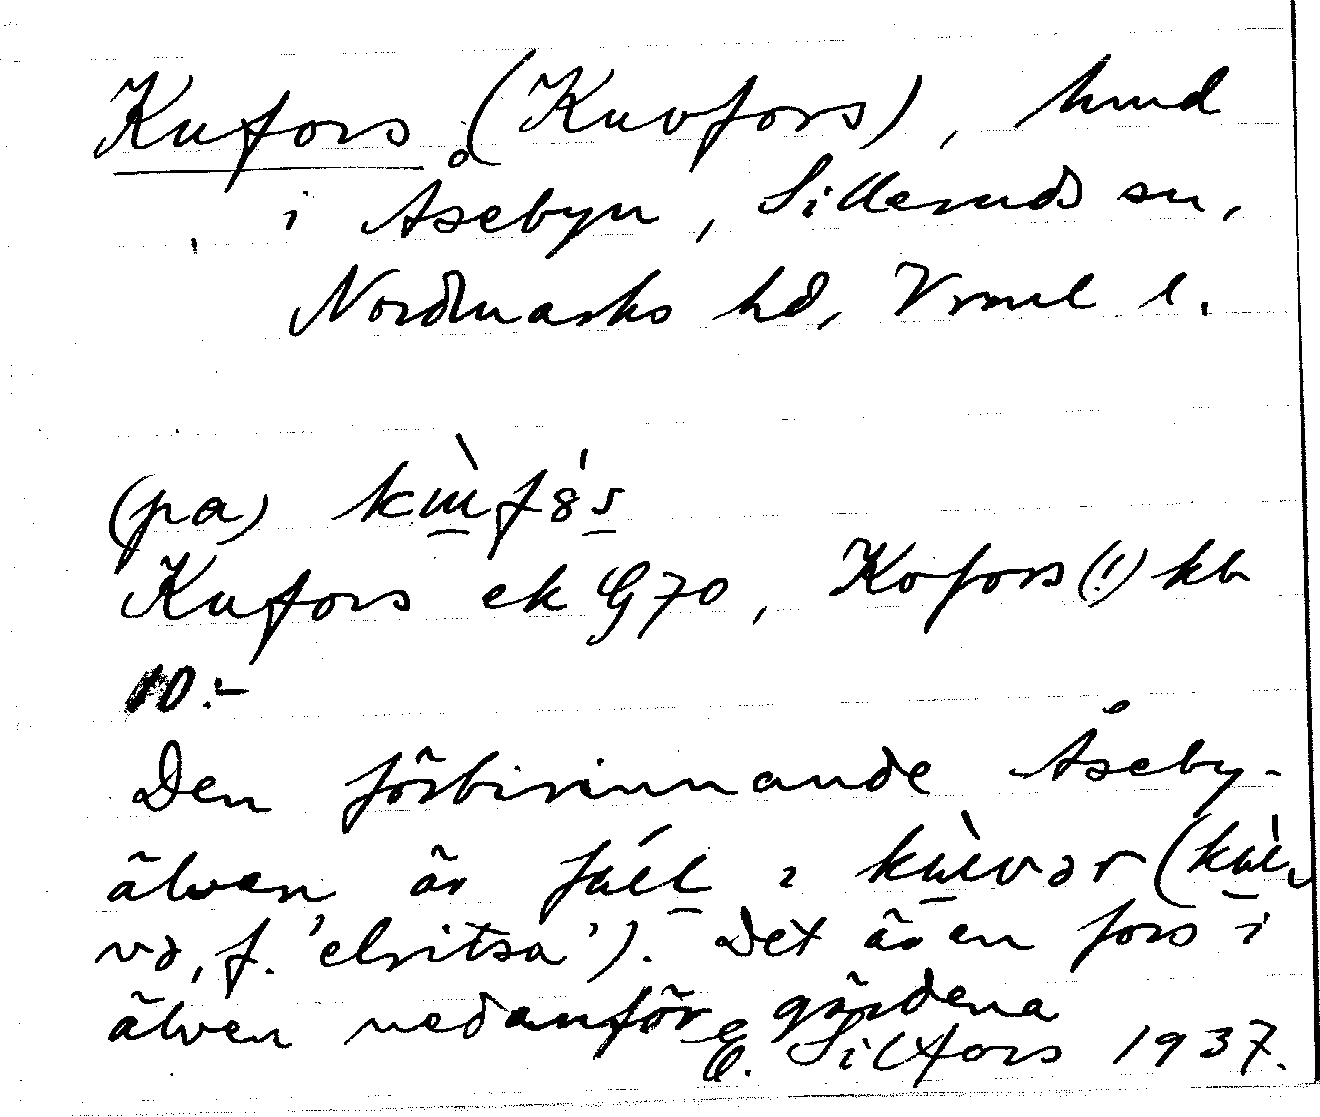 Kufors (Kuvfors), hmd
i Åsebyn, Silleruds sn,
Nordmarks hd, Vrml l.
(pa)
Kufors ek G 70, Kofors (!) kb
10:-
Den förbirinnande Åseby-
älven är full a kùvər (kù-
və, f. 'elritsa'). Det är en fors i
älven nedanför gårdena
E. Silfors 1937.